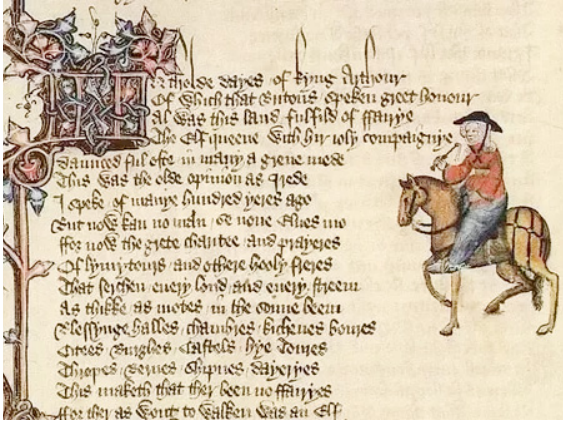 In tholde dayes of kyng Arthour
Of which that Britons speken greet honour
Al was this land fulfild of ffairye
The Elf queene with hir ioly compaignye
Daunced ful ofte in many a grene mede
This was the olde opinion as I rede
I speke of manye hundred yeres ago
But now kan no man se none Elues mo
ffor now the grete charitee and prayeres
Of lymytours and othere hooly freres
That serchen euery lond and euery streem
As thikke as motes in the sonne beem
Blessynge halles chambres kichenes boures
Citees Burghes Castels hye Toures
Thropes Bernes Shipnes Dayeryes
This maketh that ther been no ffairyes
ffor ther as wont to walken was an Elf